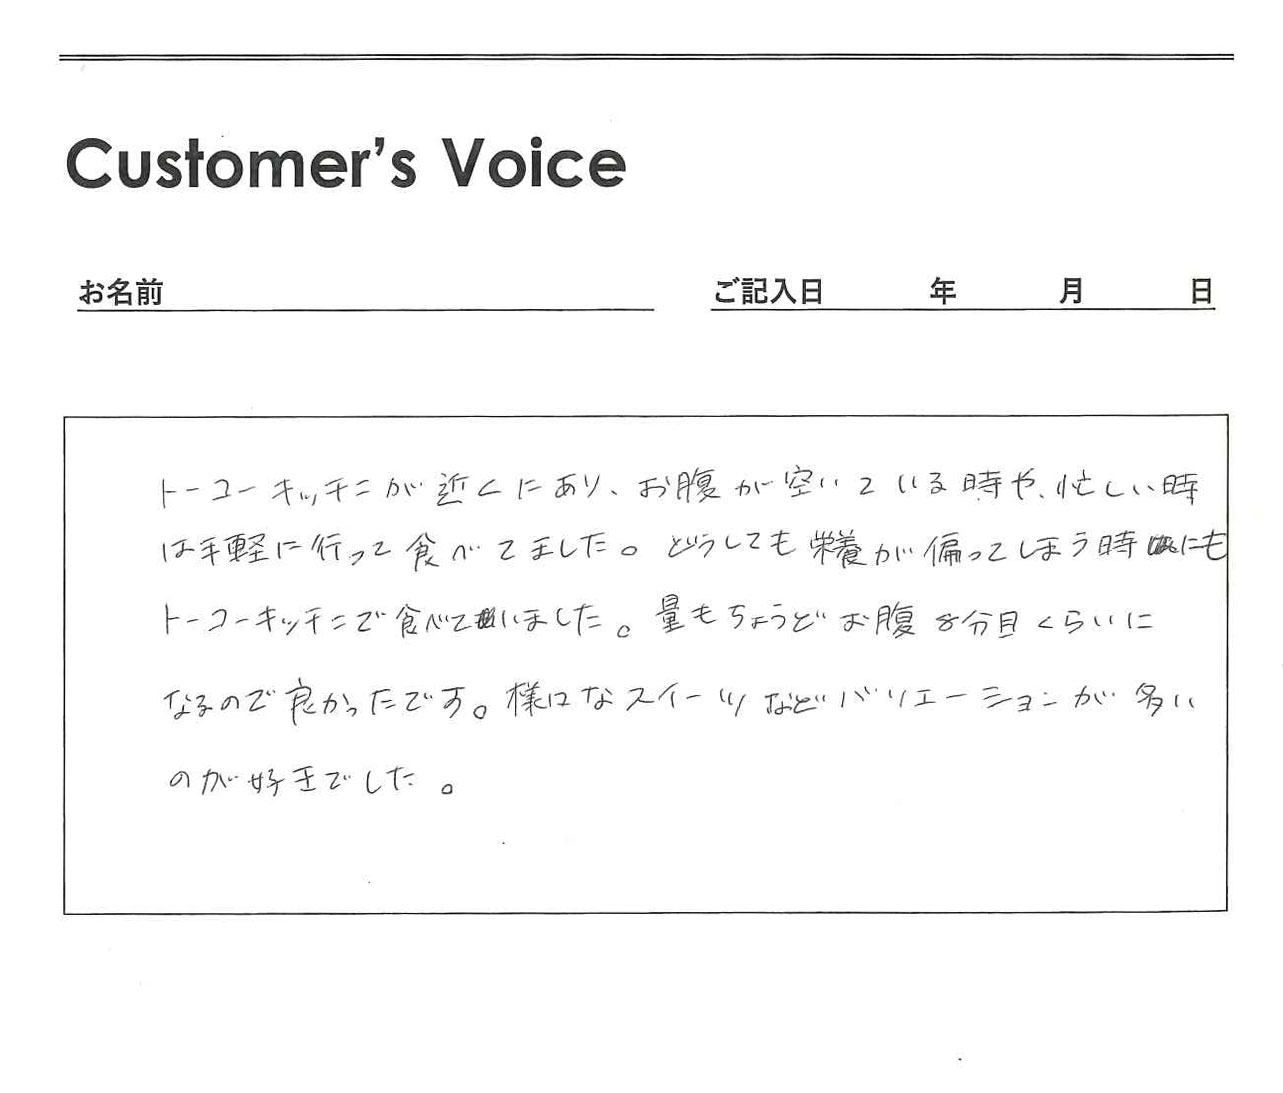 Customer's Voice
お名前
ご記入日 年 月 日
トーコーキッチンが近くにあり、お腹が空いている時や、忙しい時
は手軽に行って食べてました。どうしても栄養が偏ってしまう時にも
トーコーキッチンで食べていました。量もちょうどお腹8分目くらいに
なるので良かったです。様々なスイーツなどバリエーションが多い
のが好きでした。